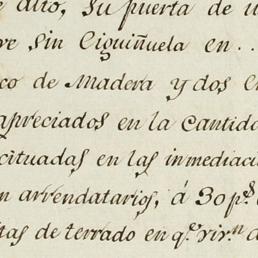 alto, su puerta de
sin Ciguiñuela en..
co de Madera y dos
apreciados en la Cantida
cituadas en las inmediaci
n arrendatarios, á 30 p.s
tas de terrado en q.e viv.n